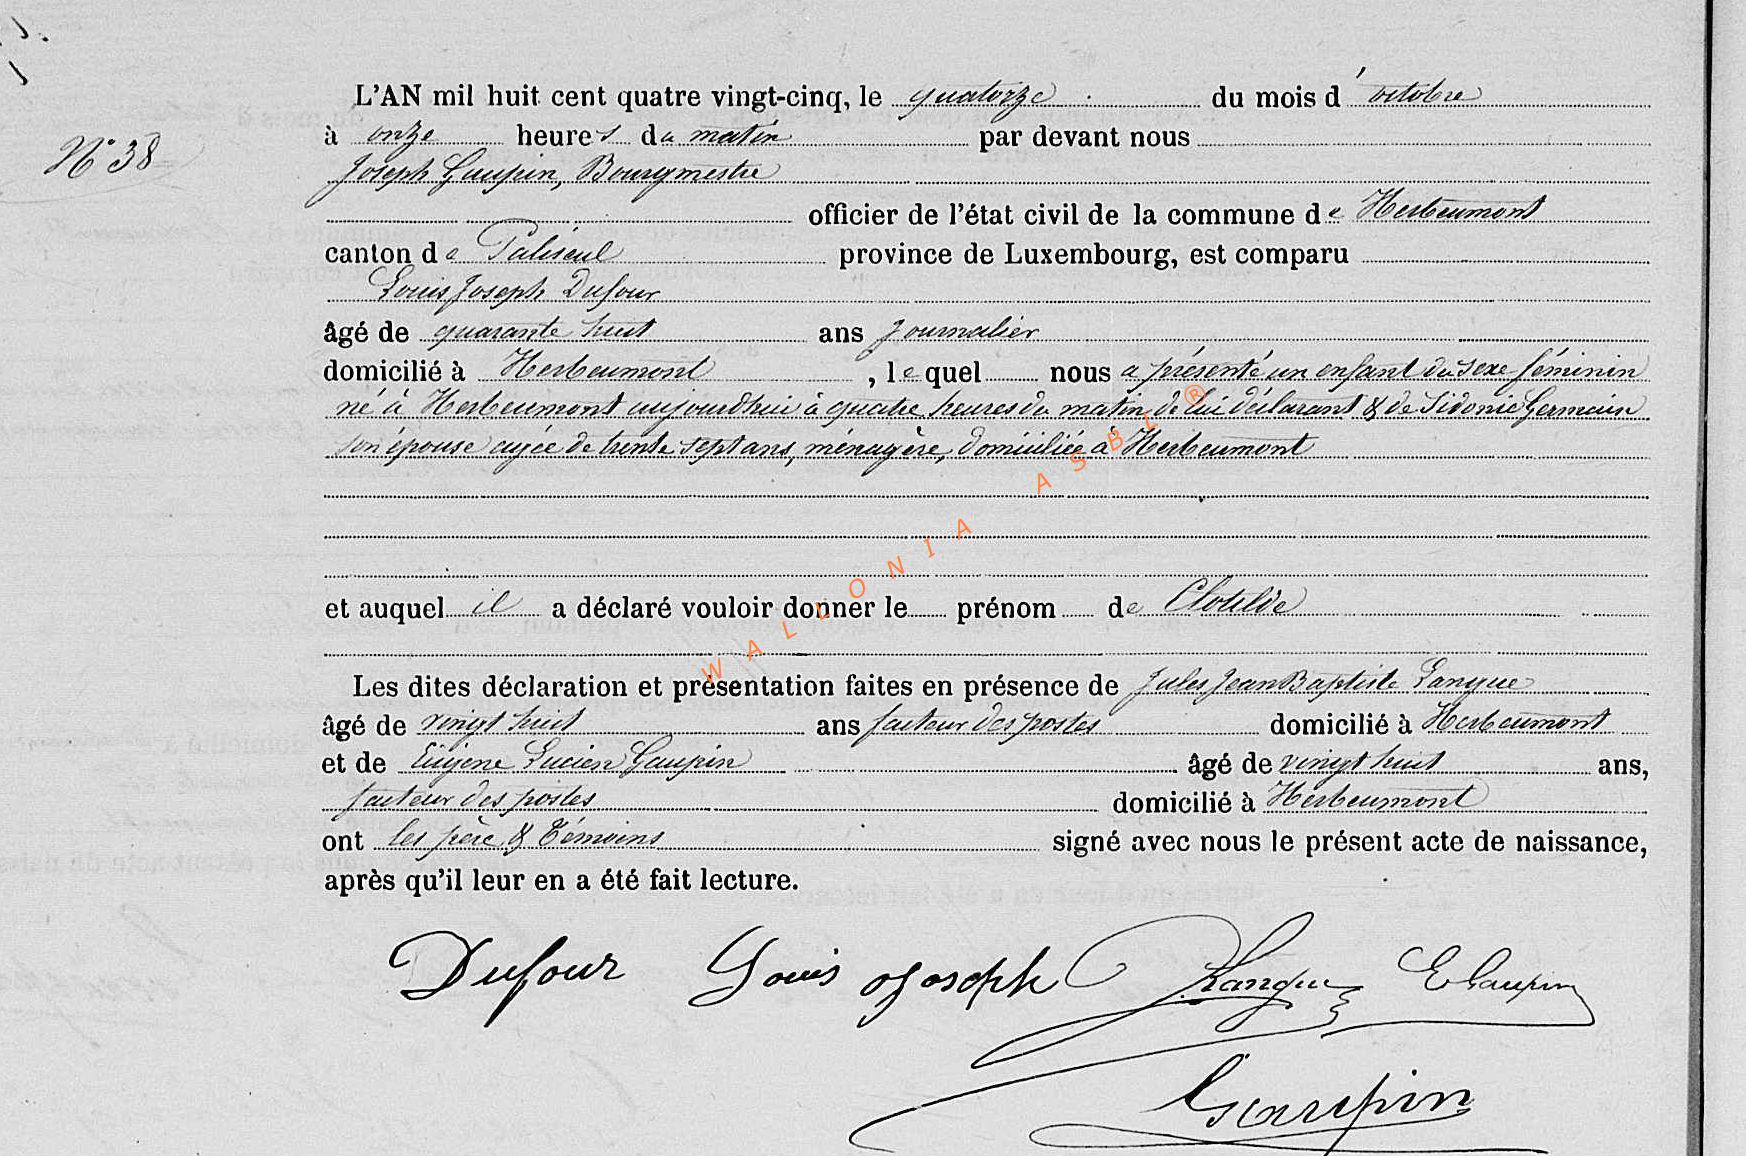 N° 38
L'AN mil huit cent quatre vingt-cinq, le quatorze du mois d'octobre
à onze heures du matin par devant nous
Joseph Gaupin, Bourgmestre
officier de l'état civil de la commune de Herbeumont
canton de Paliseul province de Luxembourg, est comparu
Louis Joseph Dufour
âgé de quarante huit ans journalier
domicilié à Herbeumont, lequel nous a présenté un enfant du sexe féminin
né à Herbeumont aujourdhui à quatre heures du matin de lui déclarant & de Sidonie Germain
son épouse agée de trente sept ans, ménagère, domiciliée à Herbeumont
et auquel il a déclaré vouloir donner le prénom de Clotilde
Les dites déclaration et présentation faites en présence de Jules Jean Baptiste Langue
âgé de vingt huit ans facteur des postes domicilié à Herbeumont
et de Eugene Lucien Gaupin âgé de vingt huit ans,
facteur des postes domicilié à Herbeumont
ont les père & Témoins signé avec nous le présent acte de naissance,
après qu'il leur en a été fait lecture.
Dufour Louis Joseph Langue E Gaupin
Gaupin
WALLONIA ASBL ®